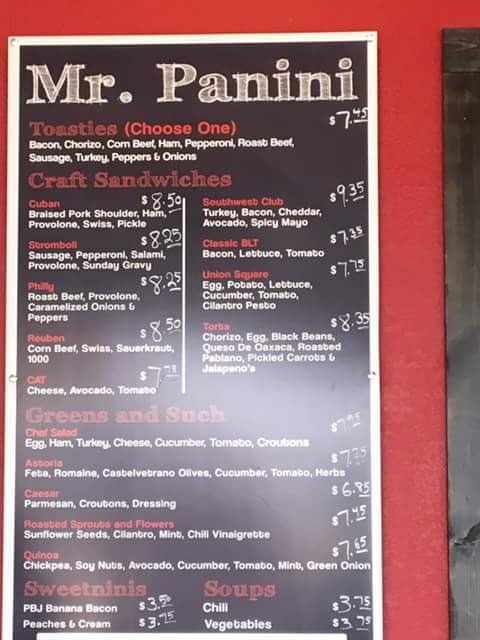 Mr. Panini
Toasties (Choose One) $7.45
Bacon, Chorizo, Corn Beef, Ham, Pepperoni, Roast Beef,
Sausage, Turkey, Peppers & Onions
Craft Sandwiches
Cuban $8.50
Braised Pork Shoulder, Ham,
Provolone, Swiss, Pickle
Stromboli $8.25
Sausage, Pepperoni, Salami,
Provolone, Sunday Gravy
Philly $8.25
Roast Beef, Provolone,
Caramelized Onions &
Peppers
Reuben $8.50
Corn Beef, Swiss, Sauerkraut,
1000
CAT $7.75
Cheese, Avocado, Tomato
Southwest Club $9.35
Turkey, Bacon, Cheddar,
Avocado, Spicy Mayo
Classic BLT $7.35
Bacon, Lettuce, Tomato
Union Square $7.75
Egg, Potato, Lettuce,
Cucumber, Tomato,
Cilantro Pesto
Torta $8.35
Chorizo, Egg, Black Beans,
Queso De Oaxaca, Roasted
Pablano, Pickled Carrots &
Jalapeno's
Greens and Such
Chef Salad $7.95
Egg, Ham, Turkey, Cheese, Cucumber, Tomato, Croutons
Astoria $7.25
Feta, Romaine, Castelvetrano Olives, Cucumber, Tomato, Herbs
Caesar $6.85
Parmesan, Croutons, Dressing
Roasted Sprouts and Flowers $7.45
Sunflower Seeds, Cilantro, Mint, Chili Vinaigrette
Quinoa $7.65
Chickpea, Soy Nuts, Avocado, Cucumber, Tomato, Mint, Green Onion
Sweetninis
PBJ Banana Bacon $3.50
Peaches & Cream $3.75
Soups
Chili $3.75
Vegetables $3.75